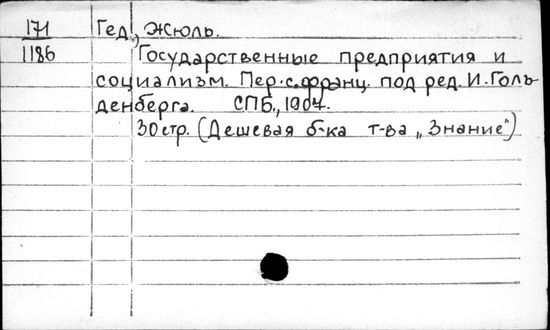 171 Гед, Жюль.
1186 Государственные предприятия и
социализм. Пер. с франц. под ред. И. Голь-
денберга. СПБ., 1907.
30 стр. (Дешевая б-ка т-ва „Знание")